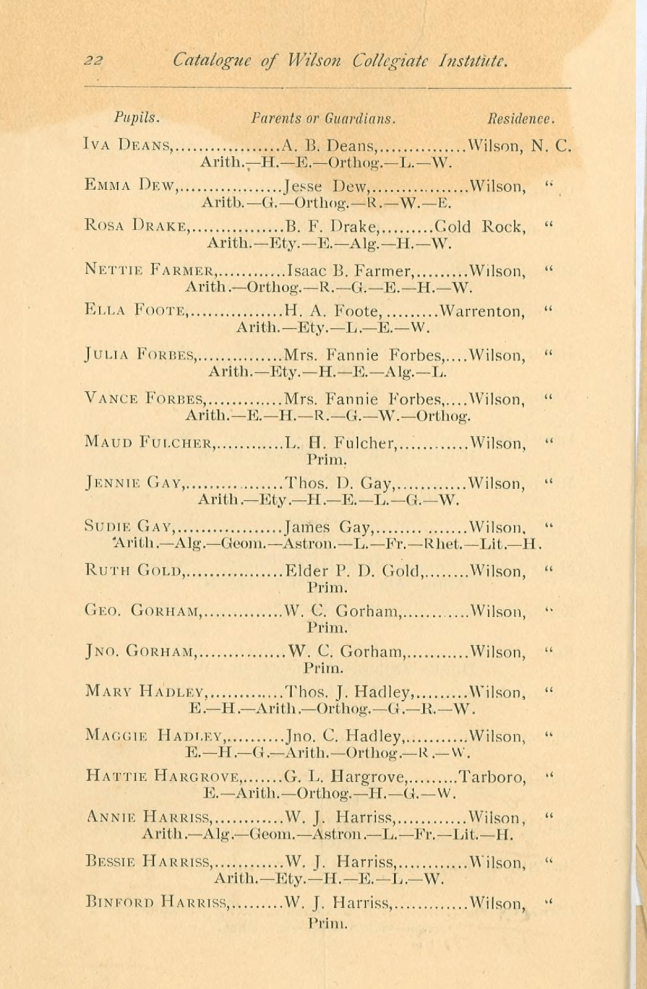 22 Catalogue of Wilson Collegiate Institute.
Pupils. Parents or Guardians. Residence.
IVA DEANS,..................A. B. Deans,...............Wilson, N. C.
Arith.—H.—E.—Orthog.—L.—W.
EMMA DEW,..................Jesse Dew,.................Wilson, “
Aritb.—G.—Orthog.—R.—W.—E.
ROSA DRAKE,................B. F. Drake,.........Gold Rock, “
Arith.—Ety.—E.—Alg.—H.—W.
NETTIE FARMER,............Isaac B. Farmer,.........Wilson, “
Arith.—Orthog.—R.—G.—E.—H.—W.
ELLA FOOTE,................H. A. Foote,.........Warrenton, “
Arith.—Ety.—L.—E.—W.
JULIA FORBES,..............Mrs. Fannie Forbes,....Wilson, “
Arith.—Ety.—H.—E.—Alg.—L.
VANCE FORBES,.............Mrs. Fannie Forbes,....Wilson, “
Arith.—E.—H.—R.—G.—W.—Orthog.
MAUD FULCHER,............L. H. Fulcher,............Wilson, “
Prim.
JENNIE GAY,.................Thos. D. Gay,............Wilson, “
Arith.—Ety.—H.—E.—L.—G.—W.
SUDIE GAY,..................James Gay,........ .......Wilson, “
Arith.—Alg.—Geom.—Astron.—L.—Fr.—Rhet.—Lit.—H.
RUTH GOLD,.................Elder P. D. Gold,........Wilson, “
Prim.
GEO. GORHAM,..............W. C. Gorham,...........Wilson, “
Prim.
JNO. GORHAM,...............W. C. Gorham,...........Wilson, “
Prim.
MARY HADLEY,.............Thos. J. Hadley,.........Wilson, “
E.—H.—Arith.—Orthog.—G.—R.—W.
MAGGIE HADLEY,..........Jno. C. Hadley,..........Wilson, “
E.—H.—G.—Arith.—Orthog.—R.—W.
HATTIE HARGROVE,.......G. L. Hargrove,........Tarboro, “
E.—Arith.—Orthog.—H.—G.—W.
ANNIE HARRISS,............W. J. Harriss,............Wilson, “
Arith.—Alg.—Geom.—Astron.—L.—Fr.—Lit.—H.
BESSIE HARRISS,............W. J. Harriss,............Wilson, “
Arith.—Ety.—H.—E.—L.—W.
BINFORD HARRISS,.........W. J. Harriss,............Wilson, “
Prim.